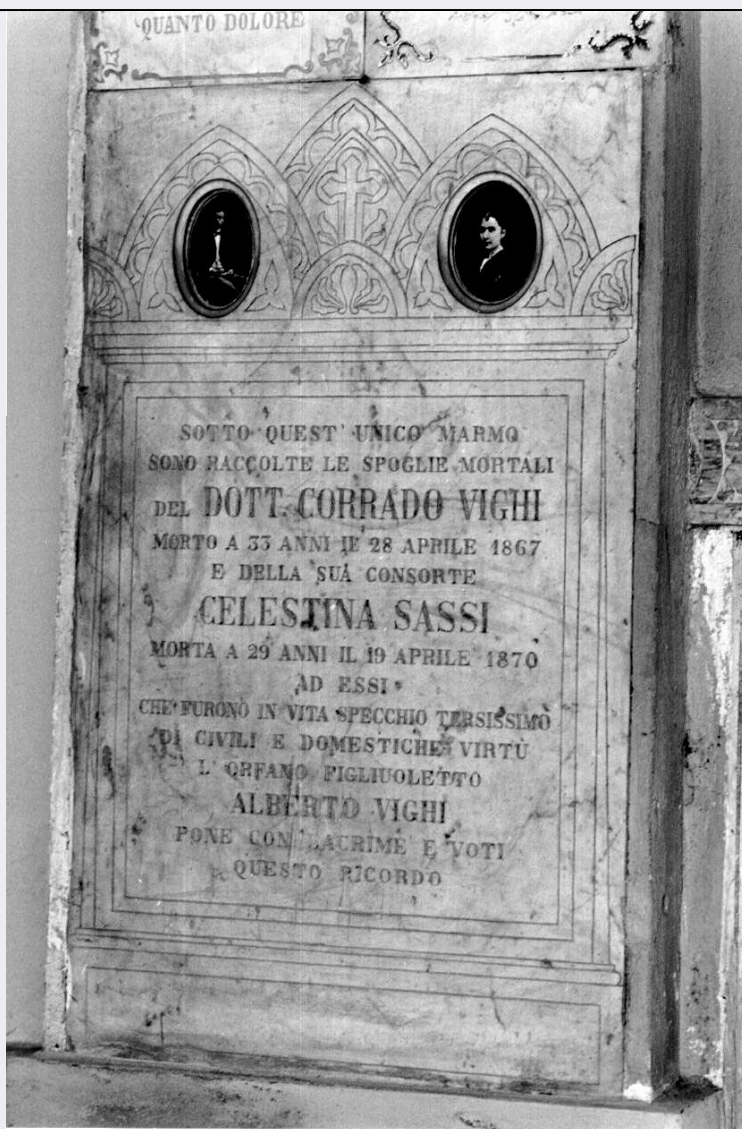 QUANTO DOLORE
SOTTO QUEST' UNICO MARMO
SONO RACCOLTE LE SPOGLIE MORTALI
DEL DOTT. CORRADO VIGHI
MORTO A 33 ANNI IL 28 APRILE 1867
E DELLA SUA CONSORTE
CELESTINA SASSI
MORTA A 29 ANNI IL 19 APRILE 1870
AD ESSI
CHE FURONO IN VITA SPECCHIO TERSISSIMO
DI CIVILI E DOMESTICHE VIRTÙ
L'ORFANO FIGLIUOLETTO
ALBERTO VIGHI
PONE CON LACRIME E VOTI
QUESTO RICORDO